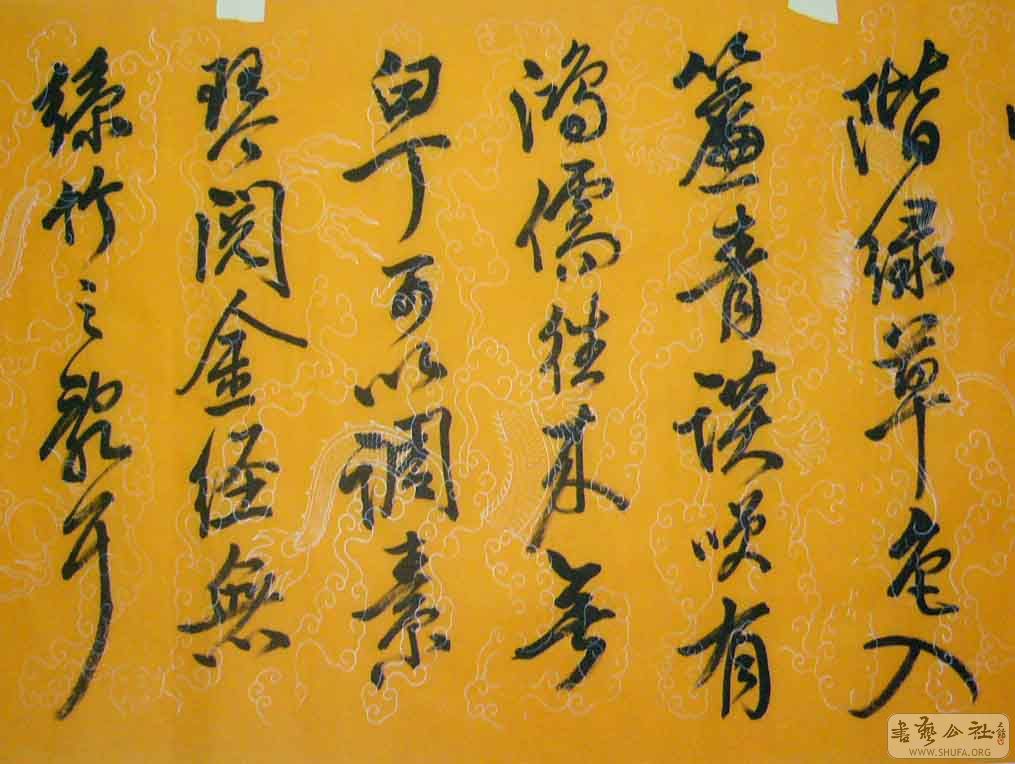 階緑草色入
簾青談咲有
鴻儒往来無
白丁可以調素
琴閲金経無
絲竹之亂耳
書藝公社
WWW.SHUFA.ORG